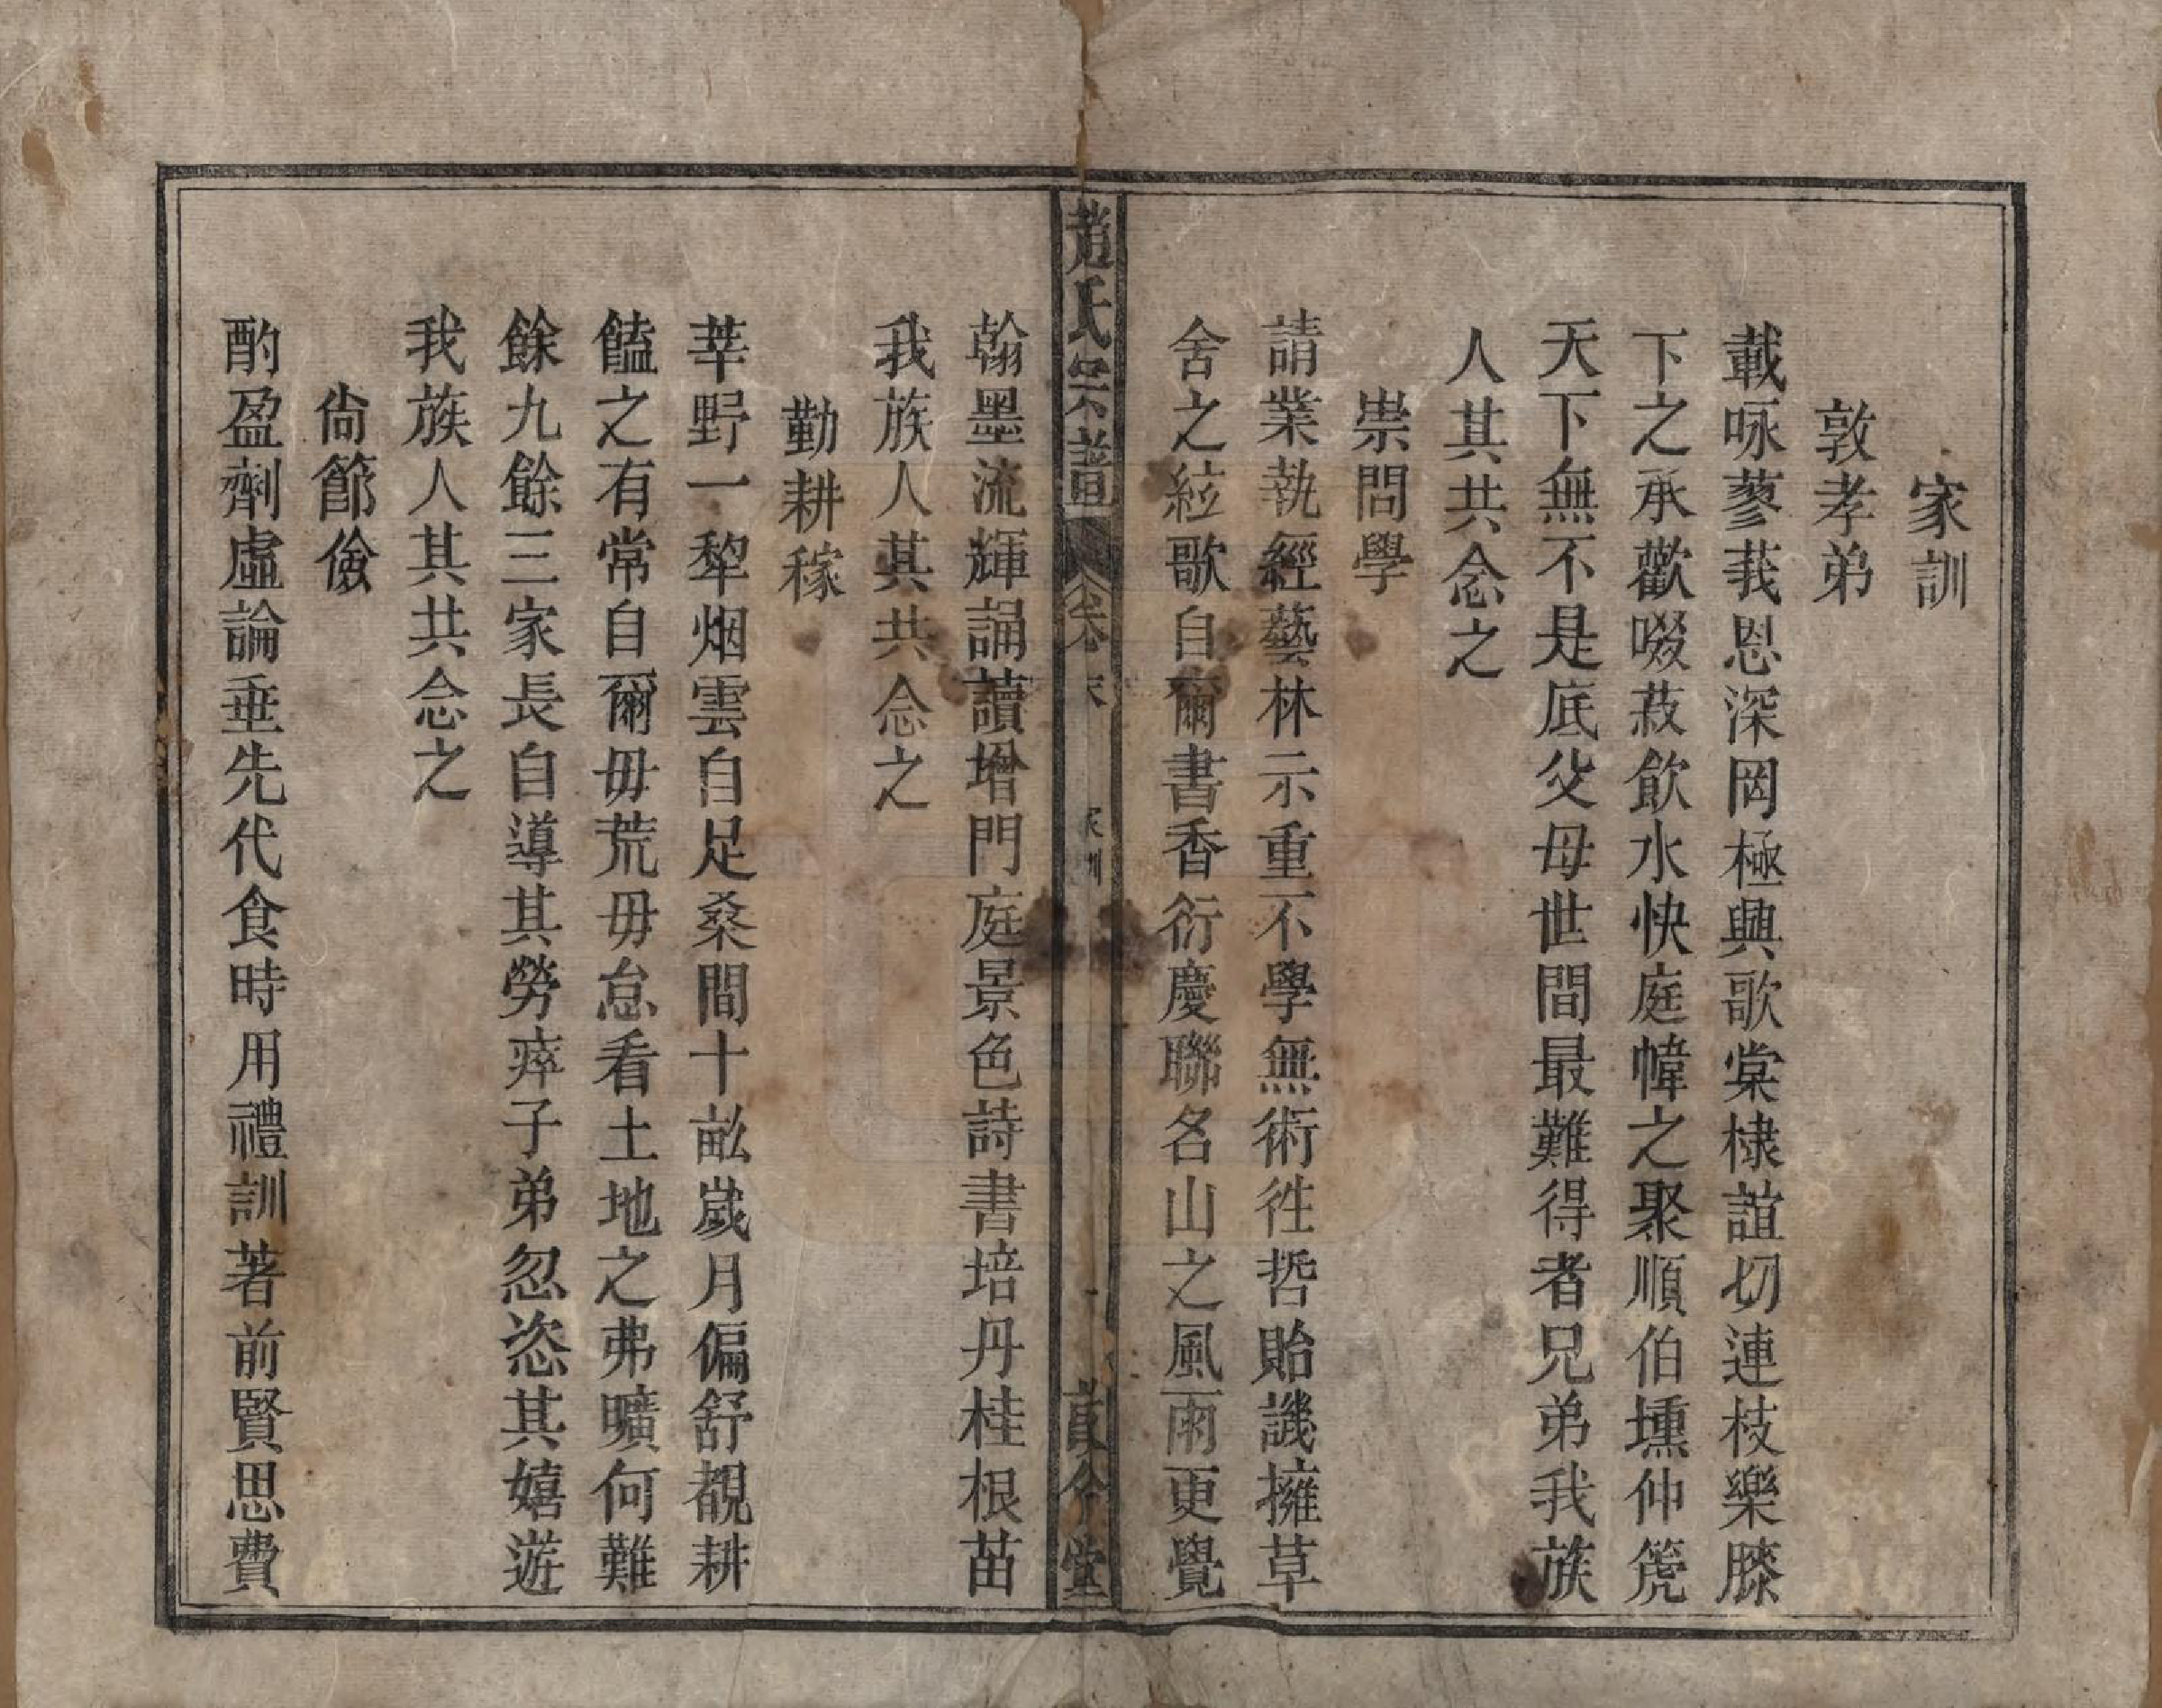 家訓
敦孝弟
載咏蓼莪恩深罔極興歌棠棣誼切連枝樂膝
下之承歡啜菽飲水快庭幃之聚順伯壎仲篪
天下無不是底父母世間最難得者兄弟我族
人其共念之
崇問學
請業執經藝林示重不學無術徃哲貽譏擁草
舍之絃歌自爾書香衍慶聯名山之風雨更覺
趙氏宗譜
卷末
家訓
翰墨流輝誦讀增門庭景色詩書培丹桂根苗
我族人其共念之
勤耕稼
莘野一犂烟雲自足桑間十畝歲月偏舒覩耕
饁之有常自爾毋荒毋怠看土地之弗曠何難
餘九餘三家長自導其勞瘁子弟忽恣其嬉遊
我族人其共念之
尙節儉
酌盈劑虛論垂先代食時用禮訓著前賢思費